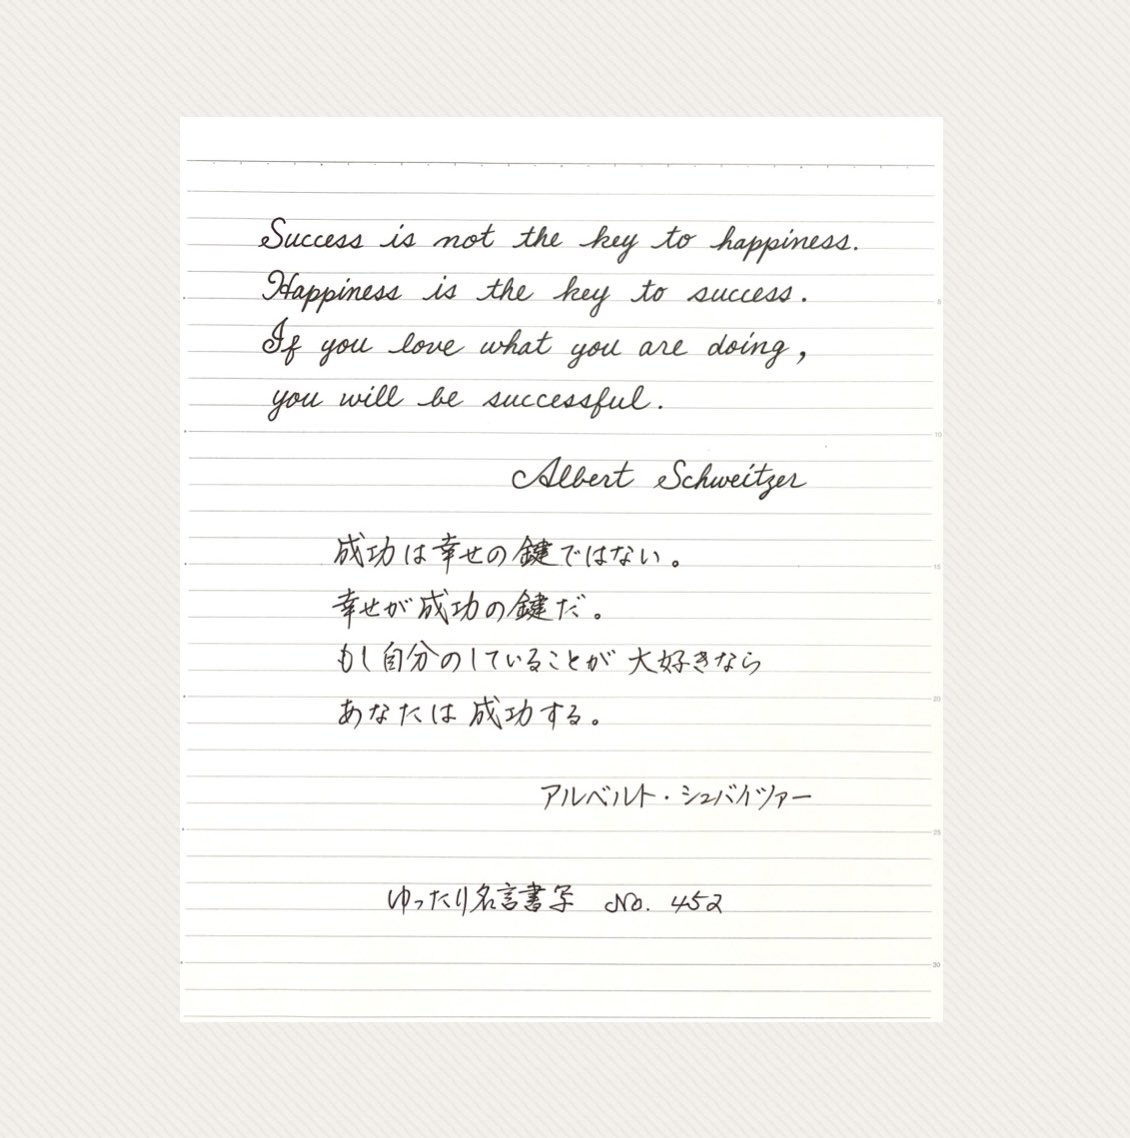 Success is not the key to happiness.
Happiness is the key to success.
If you love what you are doing,
you will be successful.
Albert Schweitzer
成功は幸せの鍵ではない。
幸せが成功の鍵だ。
もし自分のしていることが大好きなら
あなたは成功する。
アルベルト・シュバイツァー
ゆったり名言書写 No. 452
5
10
15
20
25
30